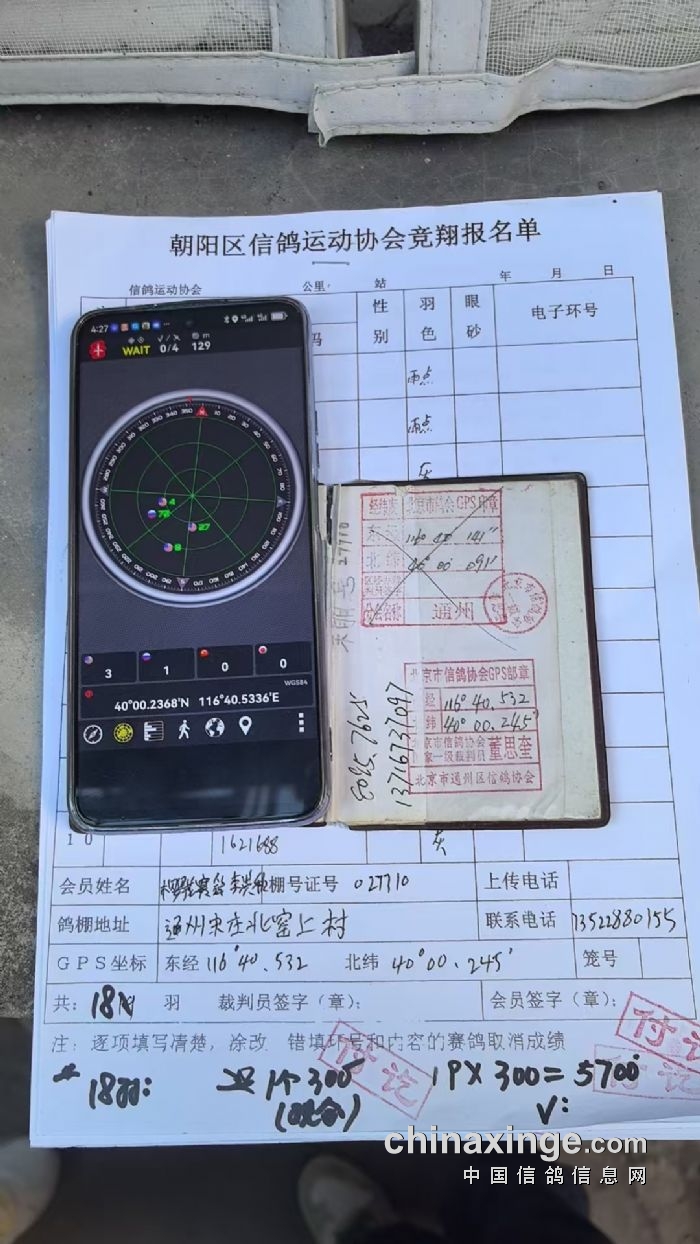 朝阳区信鸽运动协会竞翔报名单
信鸽运动协会 公里 站 年 月 日
码 性别 羽色 眼砂 电子环号
雨点
雨点
灰
4:27
WAIT 0/4 129
4
72
27
8
3 1 0 0
WGS84
40°00.2368'N 116°40.5336'E
27710
经纬度 北京市鸽会GPS印章
东经 116° 40' 141"
北纬 40° 00' 091"
通州
北京市信鸽协会GPS部章
经 116° 40.532
纬 40° 00.245'
北京市信鸽协会
国家一级裁判员 董思奎
北京市通州区信鸽协会
8095.7625
13716737097
10 1621688 灰
会员姓名 棚号证号 027710 上传电话
鸽棚地址 通州宋庄北窑上村 联系电话 13522880155
GPS坐标 东经 116°40.532 北纬 40°00.245' 笼号
共: 18 羽 裁判员签字(章): 会员签字(章):
注: 逐项填写清楚,涂改、错填环号和内容的赛鸽取消成绩
付讫
付讫
付讫
18羽: 300 19X300=5700
chinaxinge.com
中国信鸽信息网